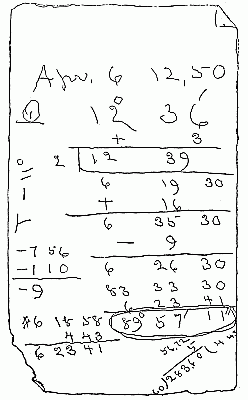 1.
Apr. 6 12,50
① 12° 36′
+ 3
2 12 39
6 19 30
+ 16
6 35 30
− 9
−7 56 6 26 30
−1 10 83 33 30
−9 6 23 41
6 18 58 89° 57′ 11″
4 43
6 23 41